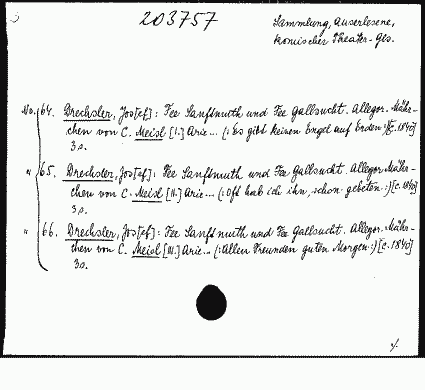 203757
Sammlung, Auserlesene,
komischer Theater-Ges.
No. 64. Drechsler, Jos[ef]: Fee Sanftmuth und Fee Gallsucht. Allegor. Mähr-
chen von C. Meisl [I.] Arie... (: Es gibt keinen Engel auf Erden :) [c. 1840]
3 s.
" 65. Drechsler, Jos[ef]: Fee Sanftmuth und Fee Gallsucht. Allegor. Mähr-
chen von C. Meisl [II.] Arie... (: Oft hab ich ihn schon gebeten :) [c. 1840]
3 s.
" 66. Drechsler, Jos[ef]: Fee Sanftmuth und Fee Gallsucht. Allegor. Mähr-
chen von C. Meisl [III.] Arie... (: Allen Freunden guten Morgen :) [c. 1840]
3 s.